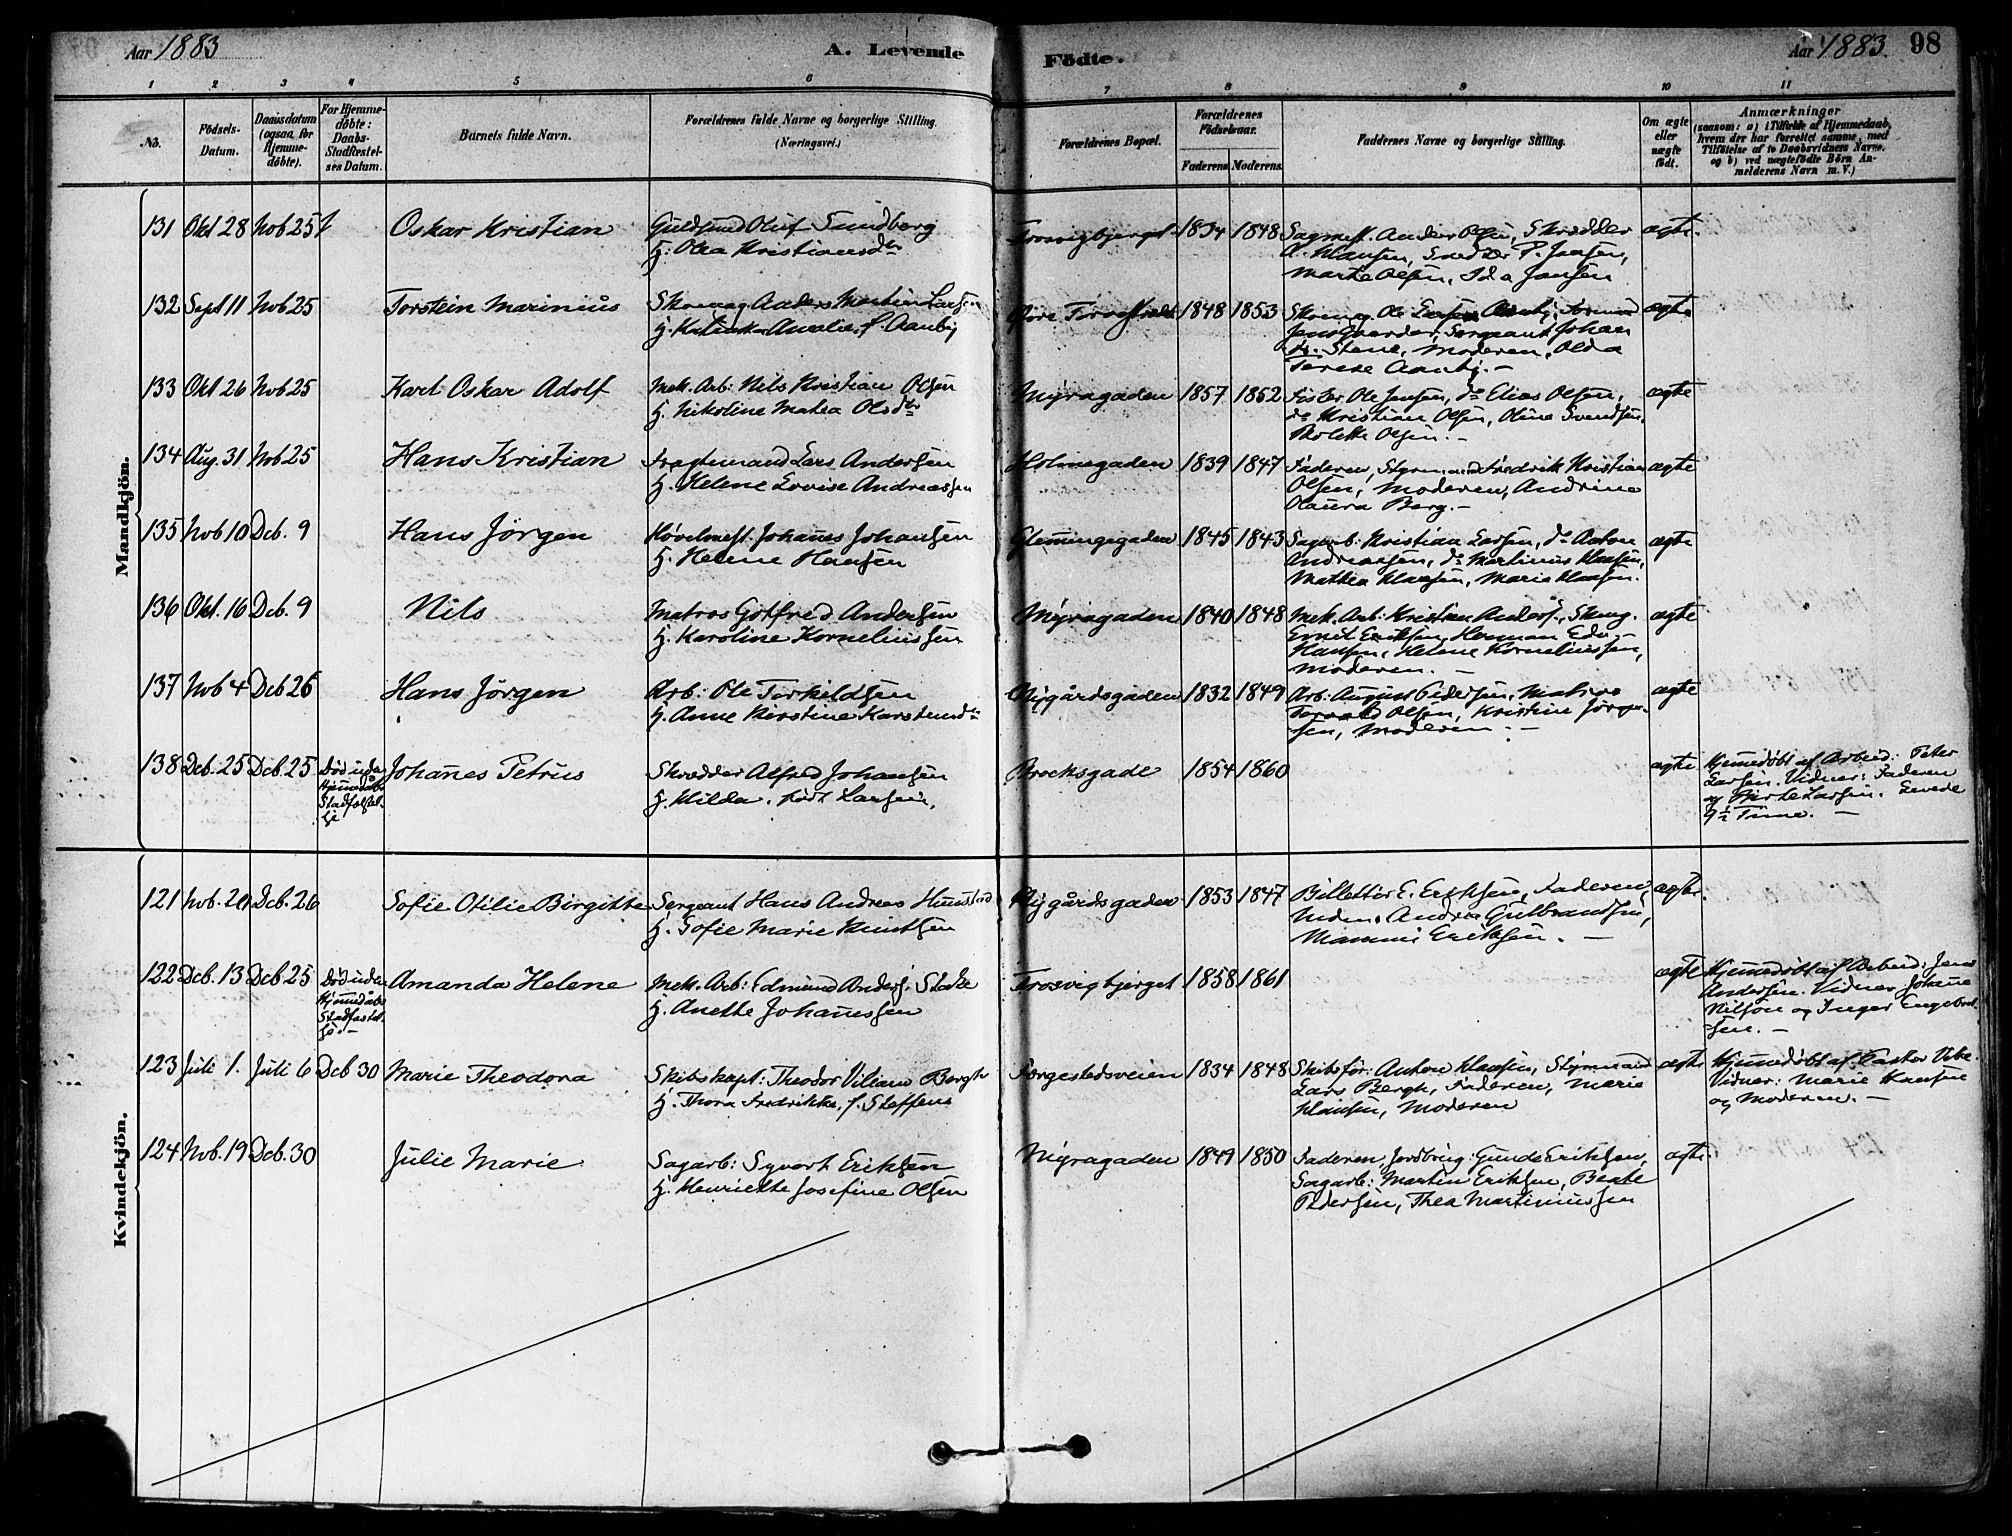 Aar 1883
A. Levende
Födte.
Aar 1883. 98
1 2 3 4 5 6 7 8 9 10 11
No.
Födsels-Datum.
Daabsdatum (ogsaa for Hjemme-döbte).
For Hjemme-döbte: Daabs-Stadfæstel-ses Datum.
Barnets fulde Navn.
Forældrenes fulde Navne og borgerlige Stilling. (Næringsvei.)
Forældrenes Bopæl.
Forældrenes Födselsaar.
Faderens. Moderens.
Faddernes Navne og borgerlige Stilling.
Om ægte eller uægte födt.
Anmærkninger
(saasom: a) i Tilfælde af Hjemmedaab, hvem der har forrettet samme, med Tilföielse af to Daabsvidners Navne, og b) ved uægtefödte Börn An-melderens Navn m. V.)
Mandkjön.
131 Okt 28 Nob 25 Oskar Kristian
Guldsmed Oluf Sundberg
H. Olea Kristiansdtr
Trosvigbjerget 1834 1848
Sagmest. Anders Olsen, Skrædder
A. Hansen, Snedker P. Jansen,
Marte Olsen, Ida Jansen
ægte.
132 Sept 11 Nob 25 Torstein Marinius
Skomag Anders Martin Larsen
H. Amalie f. Aanby
1848 1853
Skomag. Ole
Sergeant Johan
Stene, Moderen, Olda
Terese Aanby. -
ægte
133 Okt 26 Nob 25 Karl Oskar Adolf
Mek. Arb: Nils Kristian Olsen
H. Nikoline Matea Olsdtr
Myragaden 1857 1852
Fisker Ole Jensen, do Elias Olsen,
do Kristian Olsen, Oline Svendsen,
Olsen. -
ægte
134 Aug. 31 Nob 25 Hans Kristian
Fragtemand Lars Andersen
H. Helene Lovise Andreassen
Holmegaden 1839 1847
Faderen, Fredrik Kristian
Olsen, Moderen, Andrine
Laura Berg. -
ægte
135 Nob 10 Deb. 9 Hans Jörgen
Høvlemest. Johanes Johansen
H. Helene Hansen
Glemingegaden 1845 1843
Sagarb. Kristian Larsen, do Anton
Andreassen, do Martinius Hansen,
Mathea Hansen, Maria Hansen.
ægte
136 Okt. 16 Deb. 9 Nils
Matros Gotfred Andersen
H. Karoline Korneliussen
Myragaden 1840 1848
Mek. Arb: Kristian Anders., Skomg.
Ernst Eriksen, Herman Edv.
Hansen, Helene Korneliussen,
Moderen. -
ægte
137 Nob 4 Deb 26 Hans Jörgen
Arb: Ole Torkildsen
H. Anne Kirstine Karstensdtr
Nygårdsgaden 1832 1849
Arb: August Pedersen, Matros
Olsen, Kristine Jörgen-
sen, Moderen. -
ægte
138 Deb. 25 Deb. 25
Död uden
Hjemmedåbs
Stadfæstel-
se
Johanes Petrus
Skrædder Alfred Johansen
H. Hilda, født Larsen,
Brocksgade 1854 1860
ægte
Hjemedøbt af Arbeid: Peter
Larsen. Vidner: Faderen
og Birte Larsen. Levede
9½ Time. -
Kvindekjön.
121 Nob. 20 Deb. 26 Sofie Otilie Birgitte
Sergeant Hans Andreas Hunstad
H. Sofie Marie Knutsen
Nygårdsgaden 1853 1847
Billettör E. Eriksen, Faderen,
Andrea Gulbrandsen,
Eriksen. -
ægte.
122 Deb. 13 Deb. 25
Död uden
Hjemmedåbs
Stadfæstel-
se. -
Amanda Helene
Mek. Arb: Edmund Anders. Stake
H. Anette Johannssen
Trosvigbjerget 1858 1861
ægte
Hjemmedøbt af Arbeid: Jens
Andersen. Vidner Johane
Nilsen og Inger Engebret-
sen. -
123 Juli 1. Juli 6 Deb 30 Marie Theodora
Skibskapt: Theodor Viliam Bergh
H. Thora Fredrikke, f. Steffens
Færgestedsveien 1834 1848
Skibsför: Anton Hansen, Styrmand
Lars Bergh, Faderen, Marie
Hansen, Moderen
ægte
Hjemmedøbt af Pastor Vibe.
Vidner: Marie Hansen
og Moderen. -
124 Nob. 19 Deb. 30 Julie Marie
Sagarb: Syvert Eriksen
H. Henriette Josefine Olsen
Myragaden 1849 1850
Faderen, Jordbrug: Gunder Eriksen,
Sagarb: Martin Eriksen, Beate
Pedersen, Thea Martiniussen
ægte